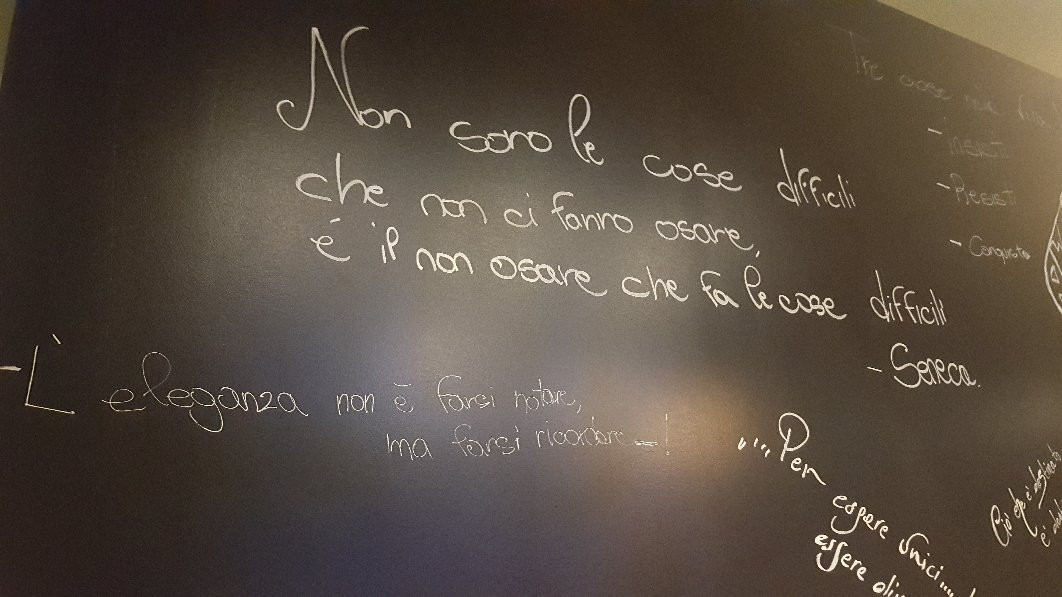 Non sono le cose difficili
che non ci fanno osare,
é il non osare che fa le cose difficili
- Seneca.
- L'eleganza non è farsi notare,
ma farsi ricordare -!
"...Per essere unici....
essere
Tre cose
- insisti
- Resisti
- Conquista
Ciò che è destinato
è